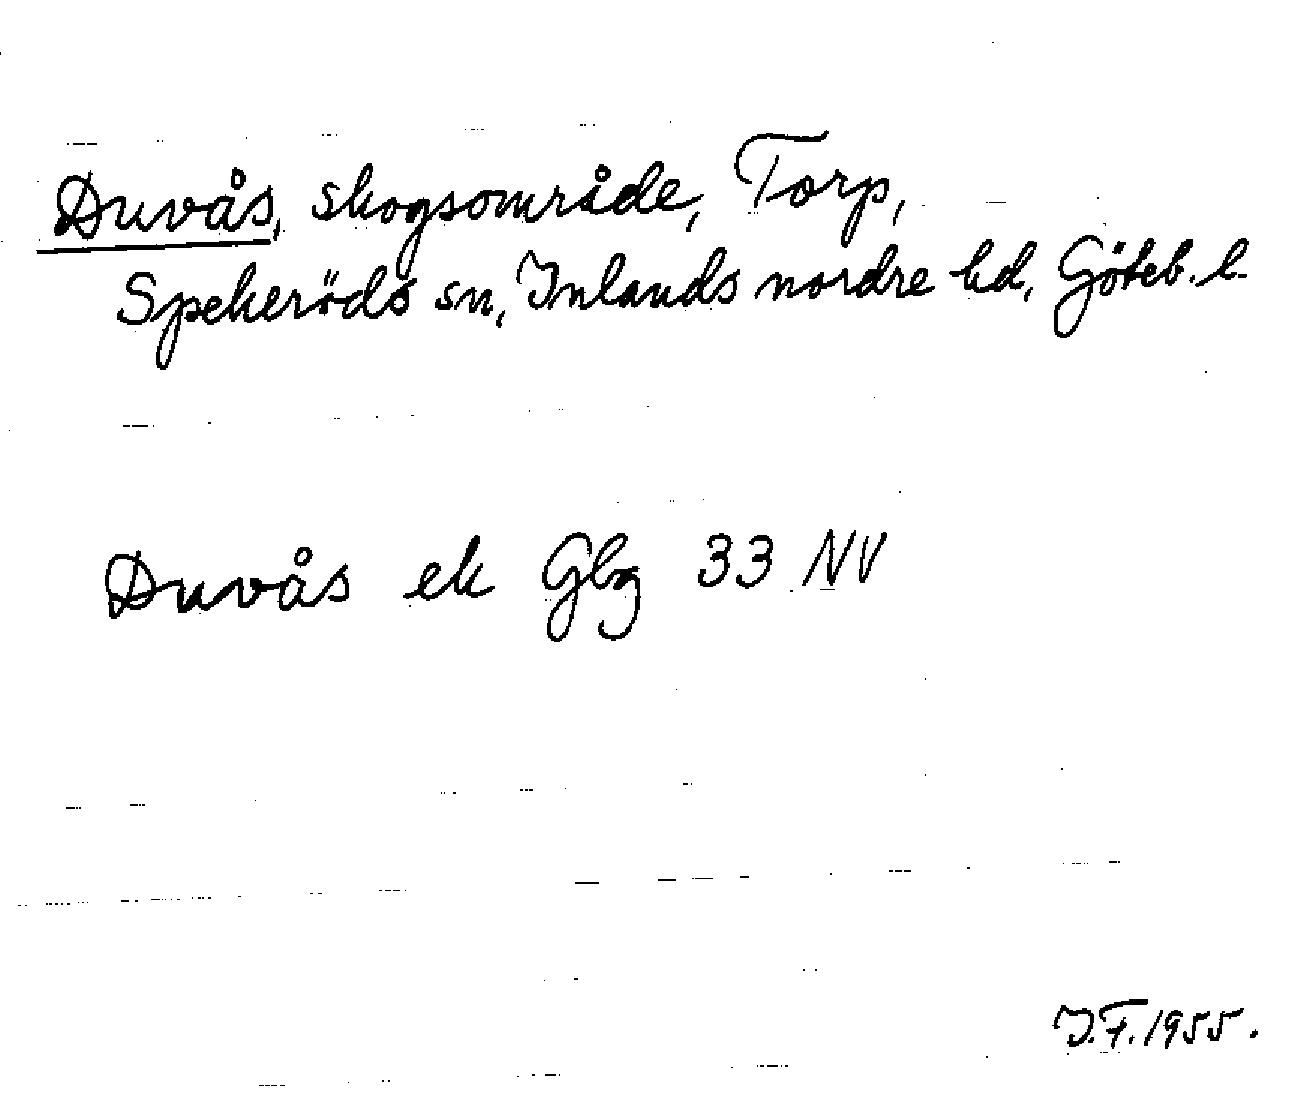 Duvås, skogsområde, Torp,
Spekeröds sn, Inlands nordre hd, Göteb. l.
Duvås ek Gbg 33 NV
I.F. 1955.